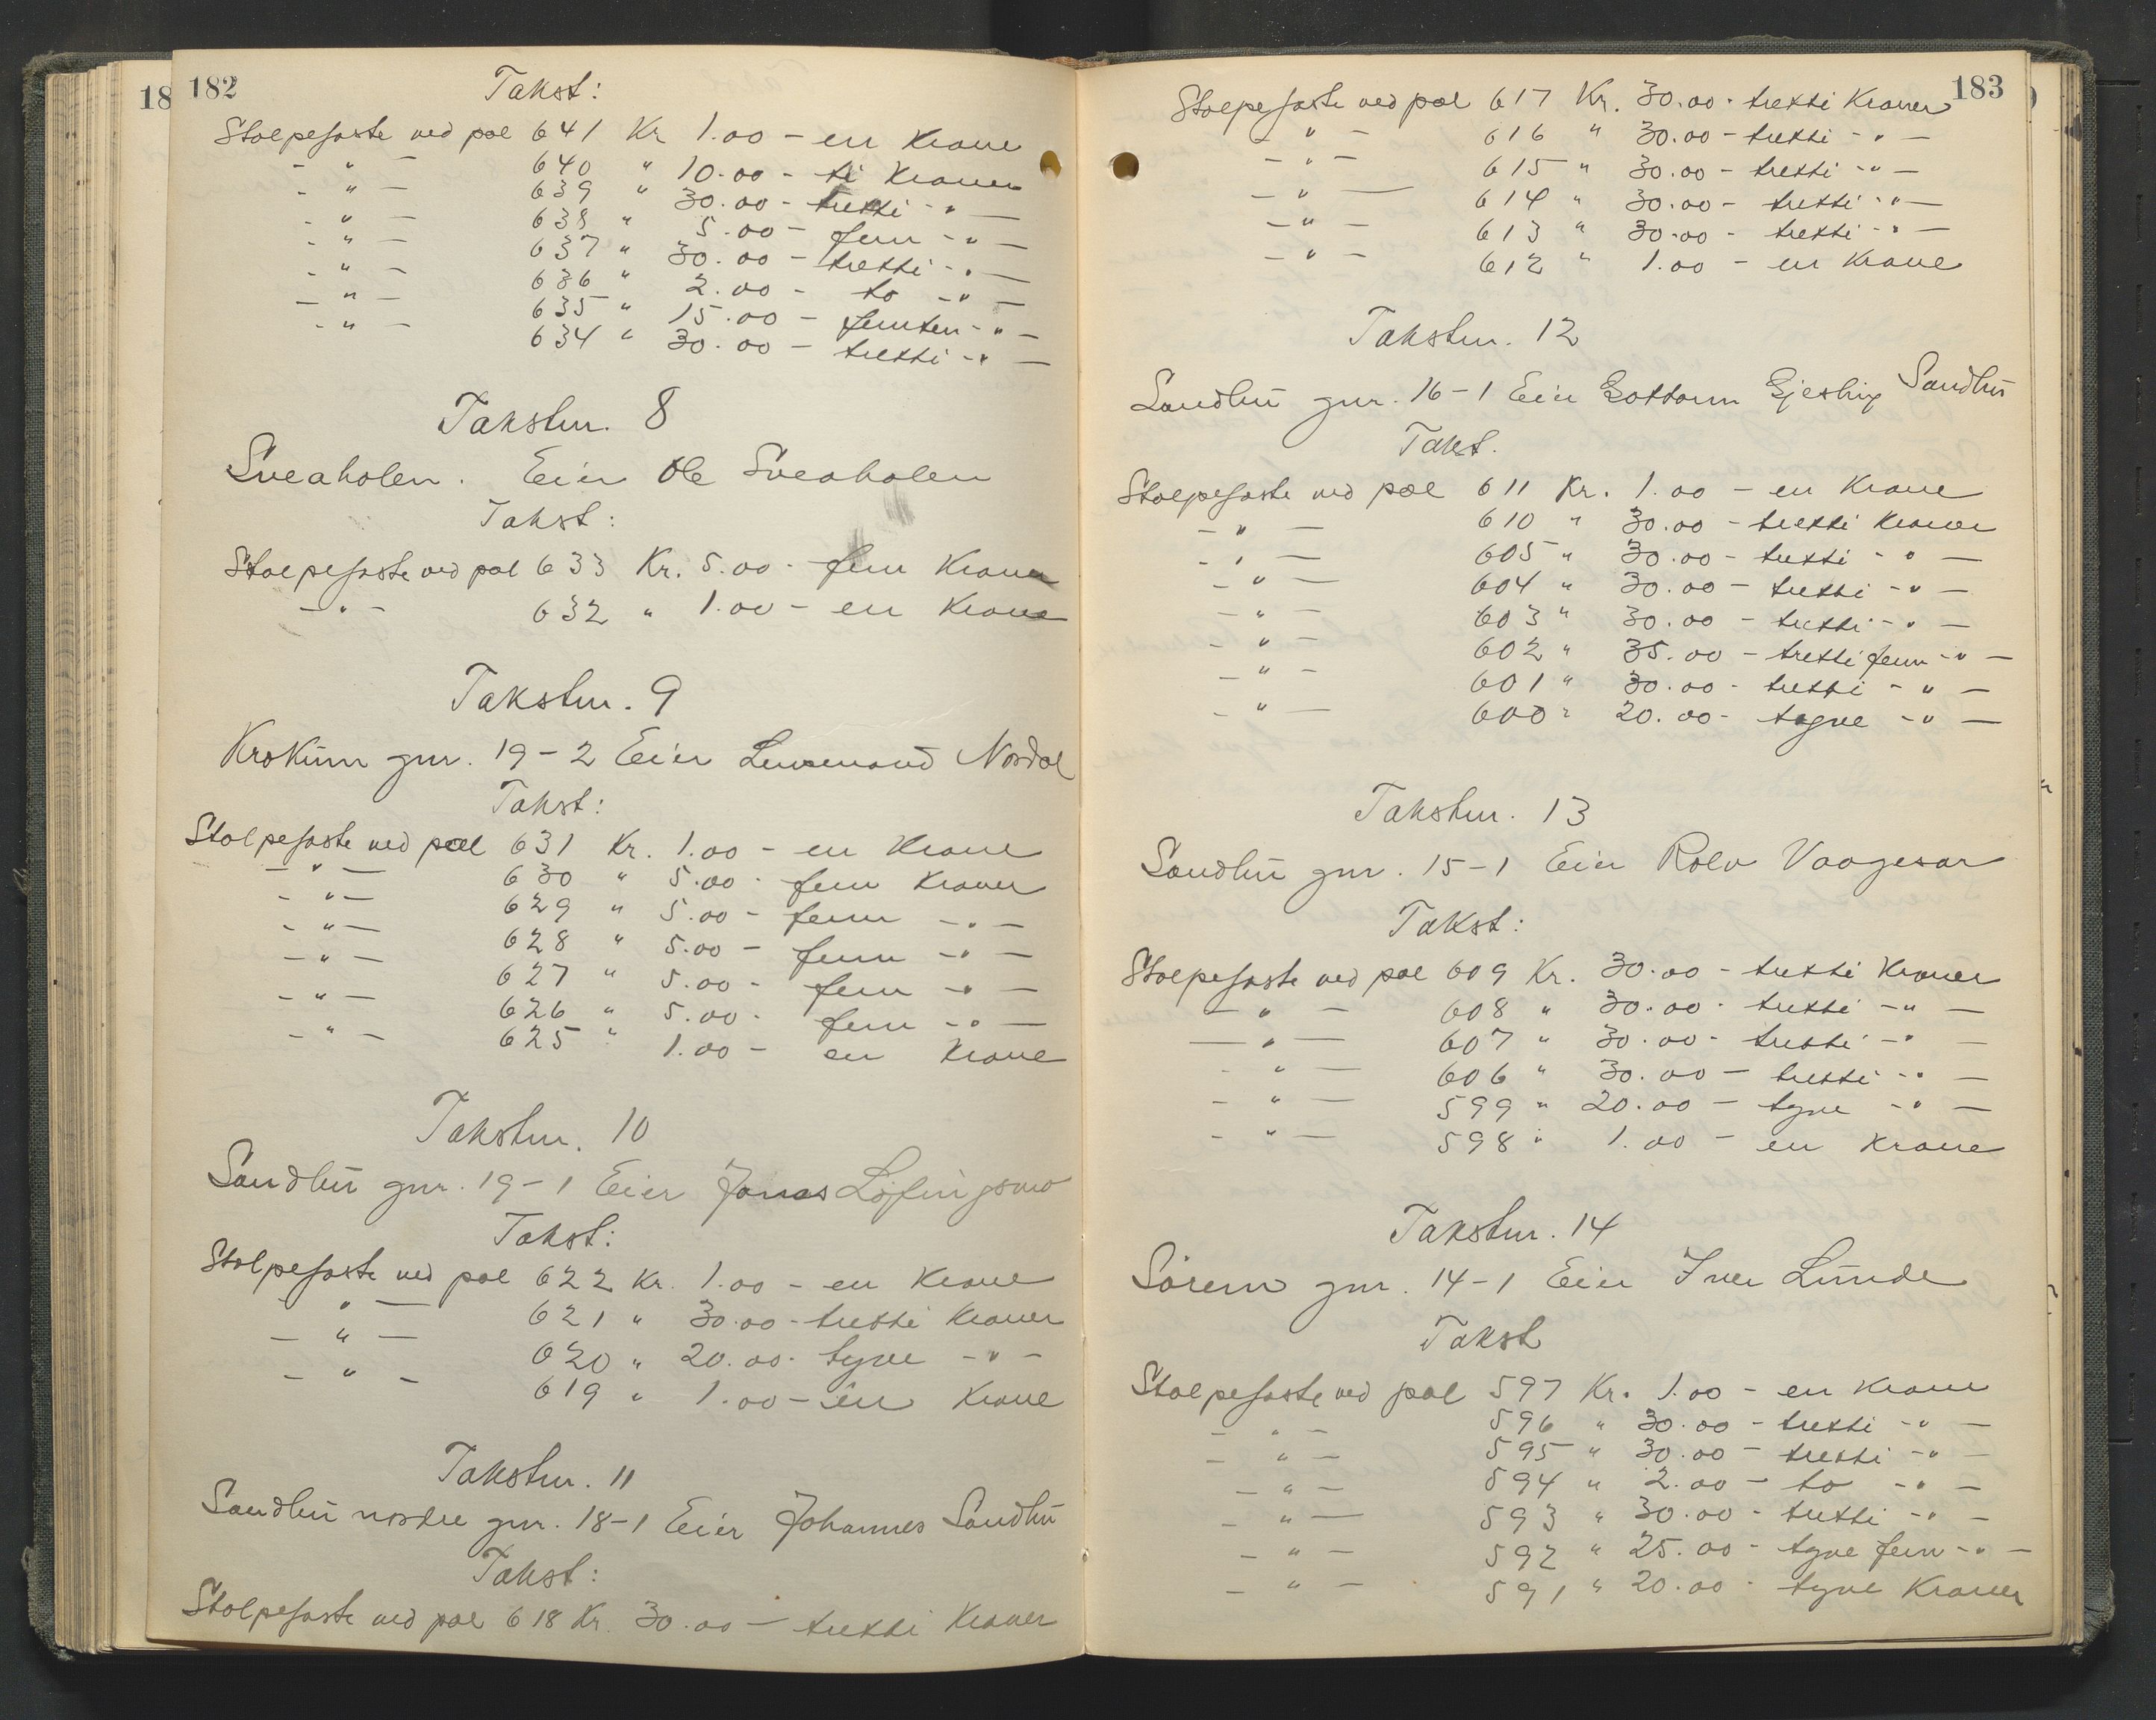 182
18
Takst:
Stolpefaste ved pæl 641 Kr 1.00 - en Krone
- " - 640 " 10.00 - ti Kroner
- " - 639 " 30.00 - tretti - " -
- " - 638 " 5.00 - fem - " -
- " - 637 " 30.00 - tretti - " -
- " - 636 " 2.00 - to - " -
- " - 635 " 15.00 - femten - " -
- " - 634 " 30.00 - tretti - " -
Takstnr. 8
Sveaholen. Eier Ole Sveaholen
Takst:
Stolpefaste ved pæl 633 Kr. 5.00 - fem Kroner
- " - 632 " 1.00 - en Krone
Takstnr. 9
Krokum gnr. 19-2 Eier Lensmand Nordal
Takst:
Stolpefaste ved pæl 631 Kr. 1.00 - en Krone
- " - 630 " 5.00 - fem Kroner
- " - 629 " 5.00 - fem - " -
- " - 628 " 5.00 - fem - " -
- " - 627 " 5.00 - fem - " -
- " - 626 " 5.00 - fem - " -
- " - 625 " 1.00 - en Krone
Takstnr. 10
Sandbu gnr. 19-1 Eier Jonas
Takst:
Stolpefaste ved pæl 622 Kr. 1.00 - en Krone
" - 621 " 30.00 - tretti Kroner
- " - 620 " 20.00 - tyve - " -
- " - 619 " 1.00 - en Krone
Takstnr. 11
Sandbu nordre gnr. 18-1 Eier Johannes Sandbu
Takst:
Stolpefaste ved pæl 618 Kr. 30.00 - tretti Kroner
183
Stolpefaste ved pæl 617 Kr. 30.00 - tretti Kroner
- " - 616 " 30.00 - tretti - " -
- " - 615 " 30.00 - tretti - " -
- " - 614 " 30.00 - tretti - " -
- " - 613 " 30.00 - tretti - " -
- " - 612 " 1.00 - en Krone
Takstnr. 12
Sandbu gnr. 16-1 Eier Sandbu
Takst.
Stolpefaste ved pæl 611 Kr. 1.00 - en Krone
- " - 610 " 30.00 - tretti Kroner
- " - 605 " 30.00 - tretti - " -
- " - 604 " 30.00 - tretti - " -
- " - 603 " 30.00 - tretti - " -
- " - 602 " 35.00 - tretti fem - " -
- " - 601 " 30.00 - tretti - " -
- " - 600 " 20.00 - tyve - " -
Takstnr. 13
Sandbu gnr. 15-1 Eier Rolv Vaagesar
Takst:
Stolpefaste ved pæl 609 Kr. 30.00 - tretti Kroner
- " - 608 " 30.00 - tretti - " -
- " - 607 " 30.00 - tretti - " -
- " - 606 " 30.00 - tretti - " -
- " - 599 " 20.00 - tyve - " -
- " - 598 " 1.00 - en Krone
Takstnr. 14
Sørem gnr. 14-1 Eier Iver Lunde
Takst
Stolpefaste ved pæl 597 Kr. 1.00 - en Krone
- " - 596 " 30.00 - tretti - " -
- " - 595 " 30.00 - tretti - " -
- " - 594 " 2.00 - to - " -
- " - 593 " 30.00 - tretti - " -
- " - 592 " 25.00 - tyve fem - " -
- " - 591 " 20.00 - tyve Kroner